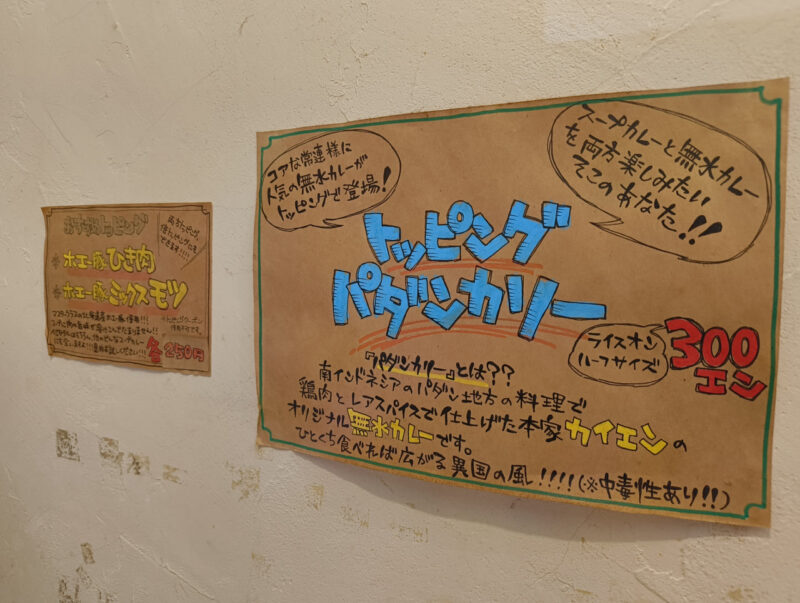 おすすめトッピング
ホエー豚ひき肉
ホエー豚ミックスモツ
各250円
コアな常連様に
人気の無水カレーが
トッピングで登場!
スープカレーと無水カレー
を両方楽しみたい
そこのあなた!!
トッピング
パダンカリー
ライスオン
ハーフサイズ
300
エン
『パダンカリー』とは??
南インドネシアのパダン地方の料理で
鶏肉とレアスパイスで仕上げた本家カイエンの
オリジナル無水カレーです。
ひとくち食べれば広がる異国の風!!!!(※中毒性あり!!)